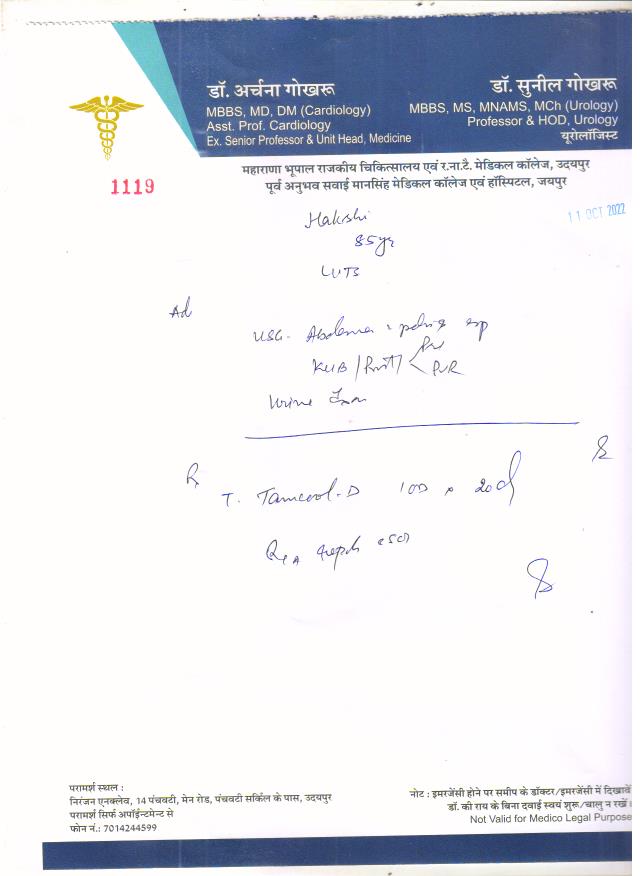 डॉ. अर्चना गोखरू
MBBS, MD, DM (Cardiology)
Asst. Prof. Cardiology
Ex. Senior Professor & Unit Head, Medicine
डॉ. सुनील गोखरू
MBBS, MS, MNAMS, MCh (Urology)
Professor & HOD, Urology
यूरोलॉजिस्ट
महाराणा भूपाल राजकीय चिकित्सालय एवं र.ना.टै. मेडिकल कॉलेज, उदयपुर
पूर्व अनुभव सवाई मानसिंह मेडिकल कॉलेज एवं हॉस्पिटल, जयपुर
1119
11 OCT 2022
85yr
LUTS
Ad
USG- Abdomen
KUB / PVR
Urine
Rx
T. -D 1OD x 20d
परामर्श स्थल :
निरंजन एनक्लेव, 14 पंचवटी, मेन रोड, पंचवटी सर्किल के पास, उदयपुर
परामर्श सिर्फ अपॉईन्टमेन्ट से
फोन नं.: 7014244599
नोट : इमरजेंसी होने पर समीप के डॉक्टर/इमरजेंसी में दिखावें
डॉ. की राय के बिना दवाई स्वयं शुरू/चालु न रखें।
Not Valid for Medico Legal Purpose